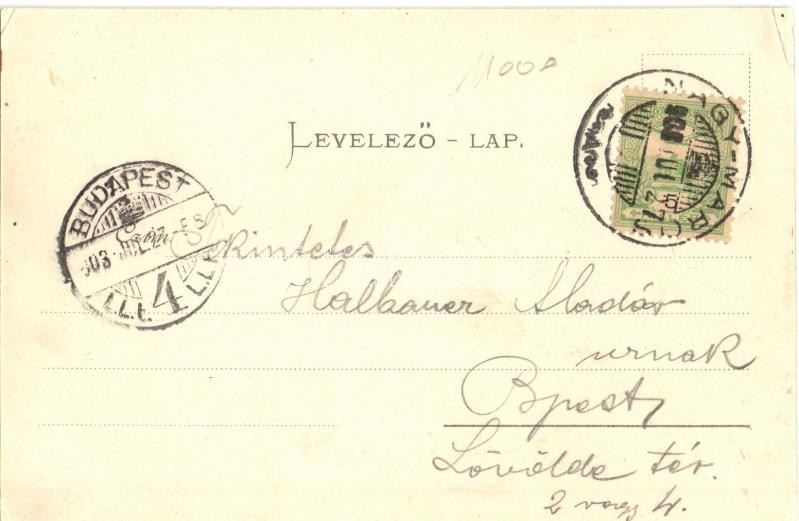 1100
LEVELEZŐ - LAP.
NAGY-MAROS
903 JUL 27
BUDAPEST
903 JUL 27
4
Tekintetes
Halbauer Aladár
urnak
Bpest,
Lövölde tér.
2 vagy 4.